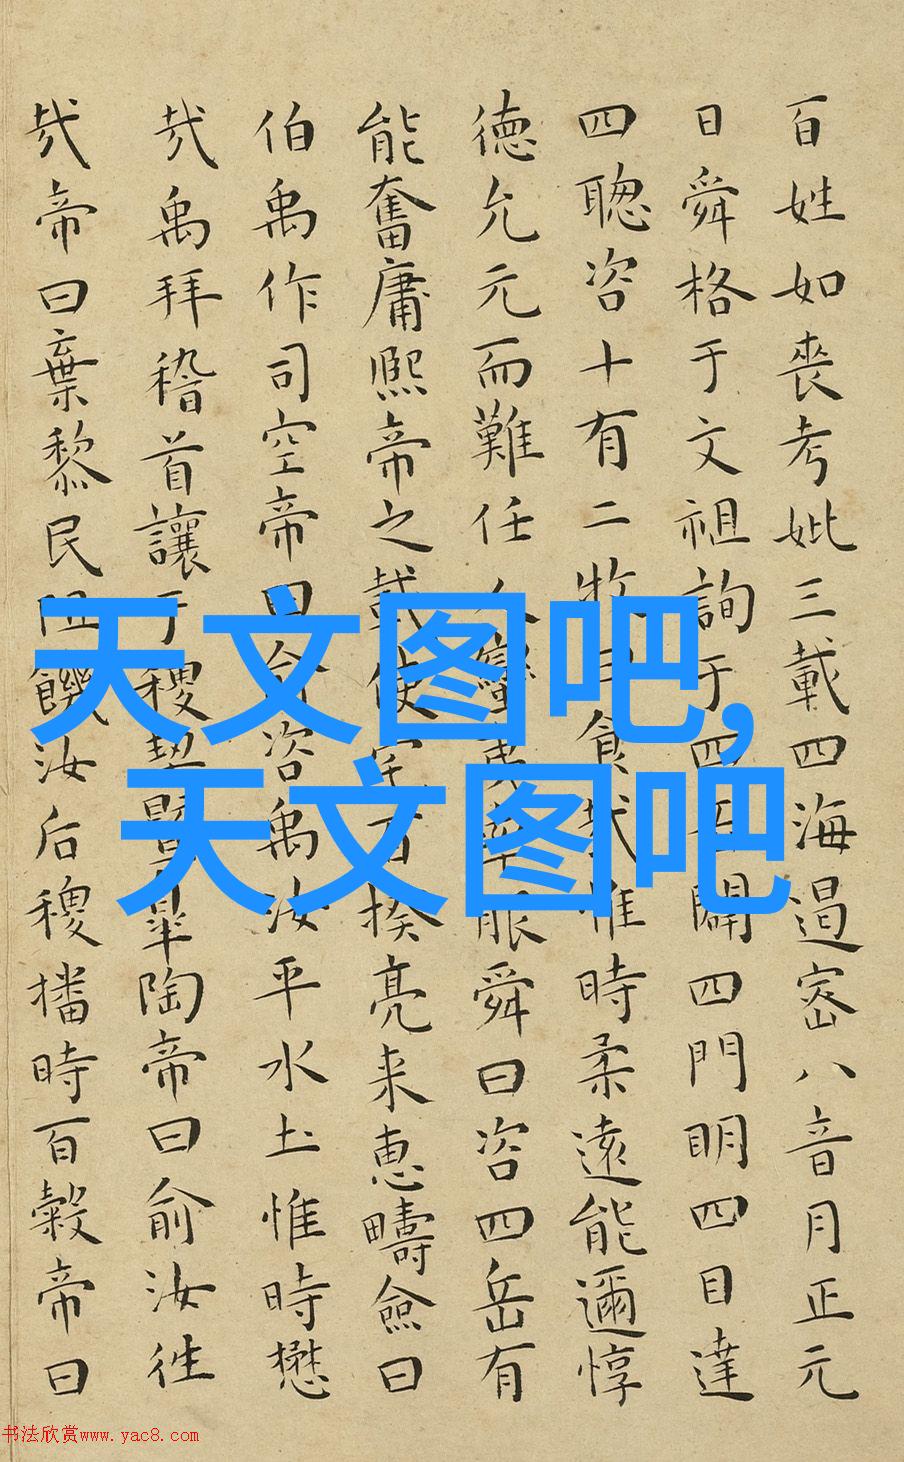 百姓如喪考妣三載四海遏密八音月正元
日舜格于文祖詢于四岳闢四門明四目達
四聰咨十有二牧曰食哉惟時柔遠能邇惇
德允元而難任人蠻夷率服舜曰咨四岳有
能奮庸熙帝之載使宅百揆亮采惠疇僉曰
伯禹作司空帝曰俞咨禹汝平水土惟時懋
哉禹拜稽首讓于稷契暨皋陶帝曰俞汝往
哉帝曰棄黎民阻饑汝后稷播時百穀帝曰
天文图吧,
天文图吧
书法欣赏www.yac8.com